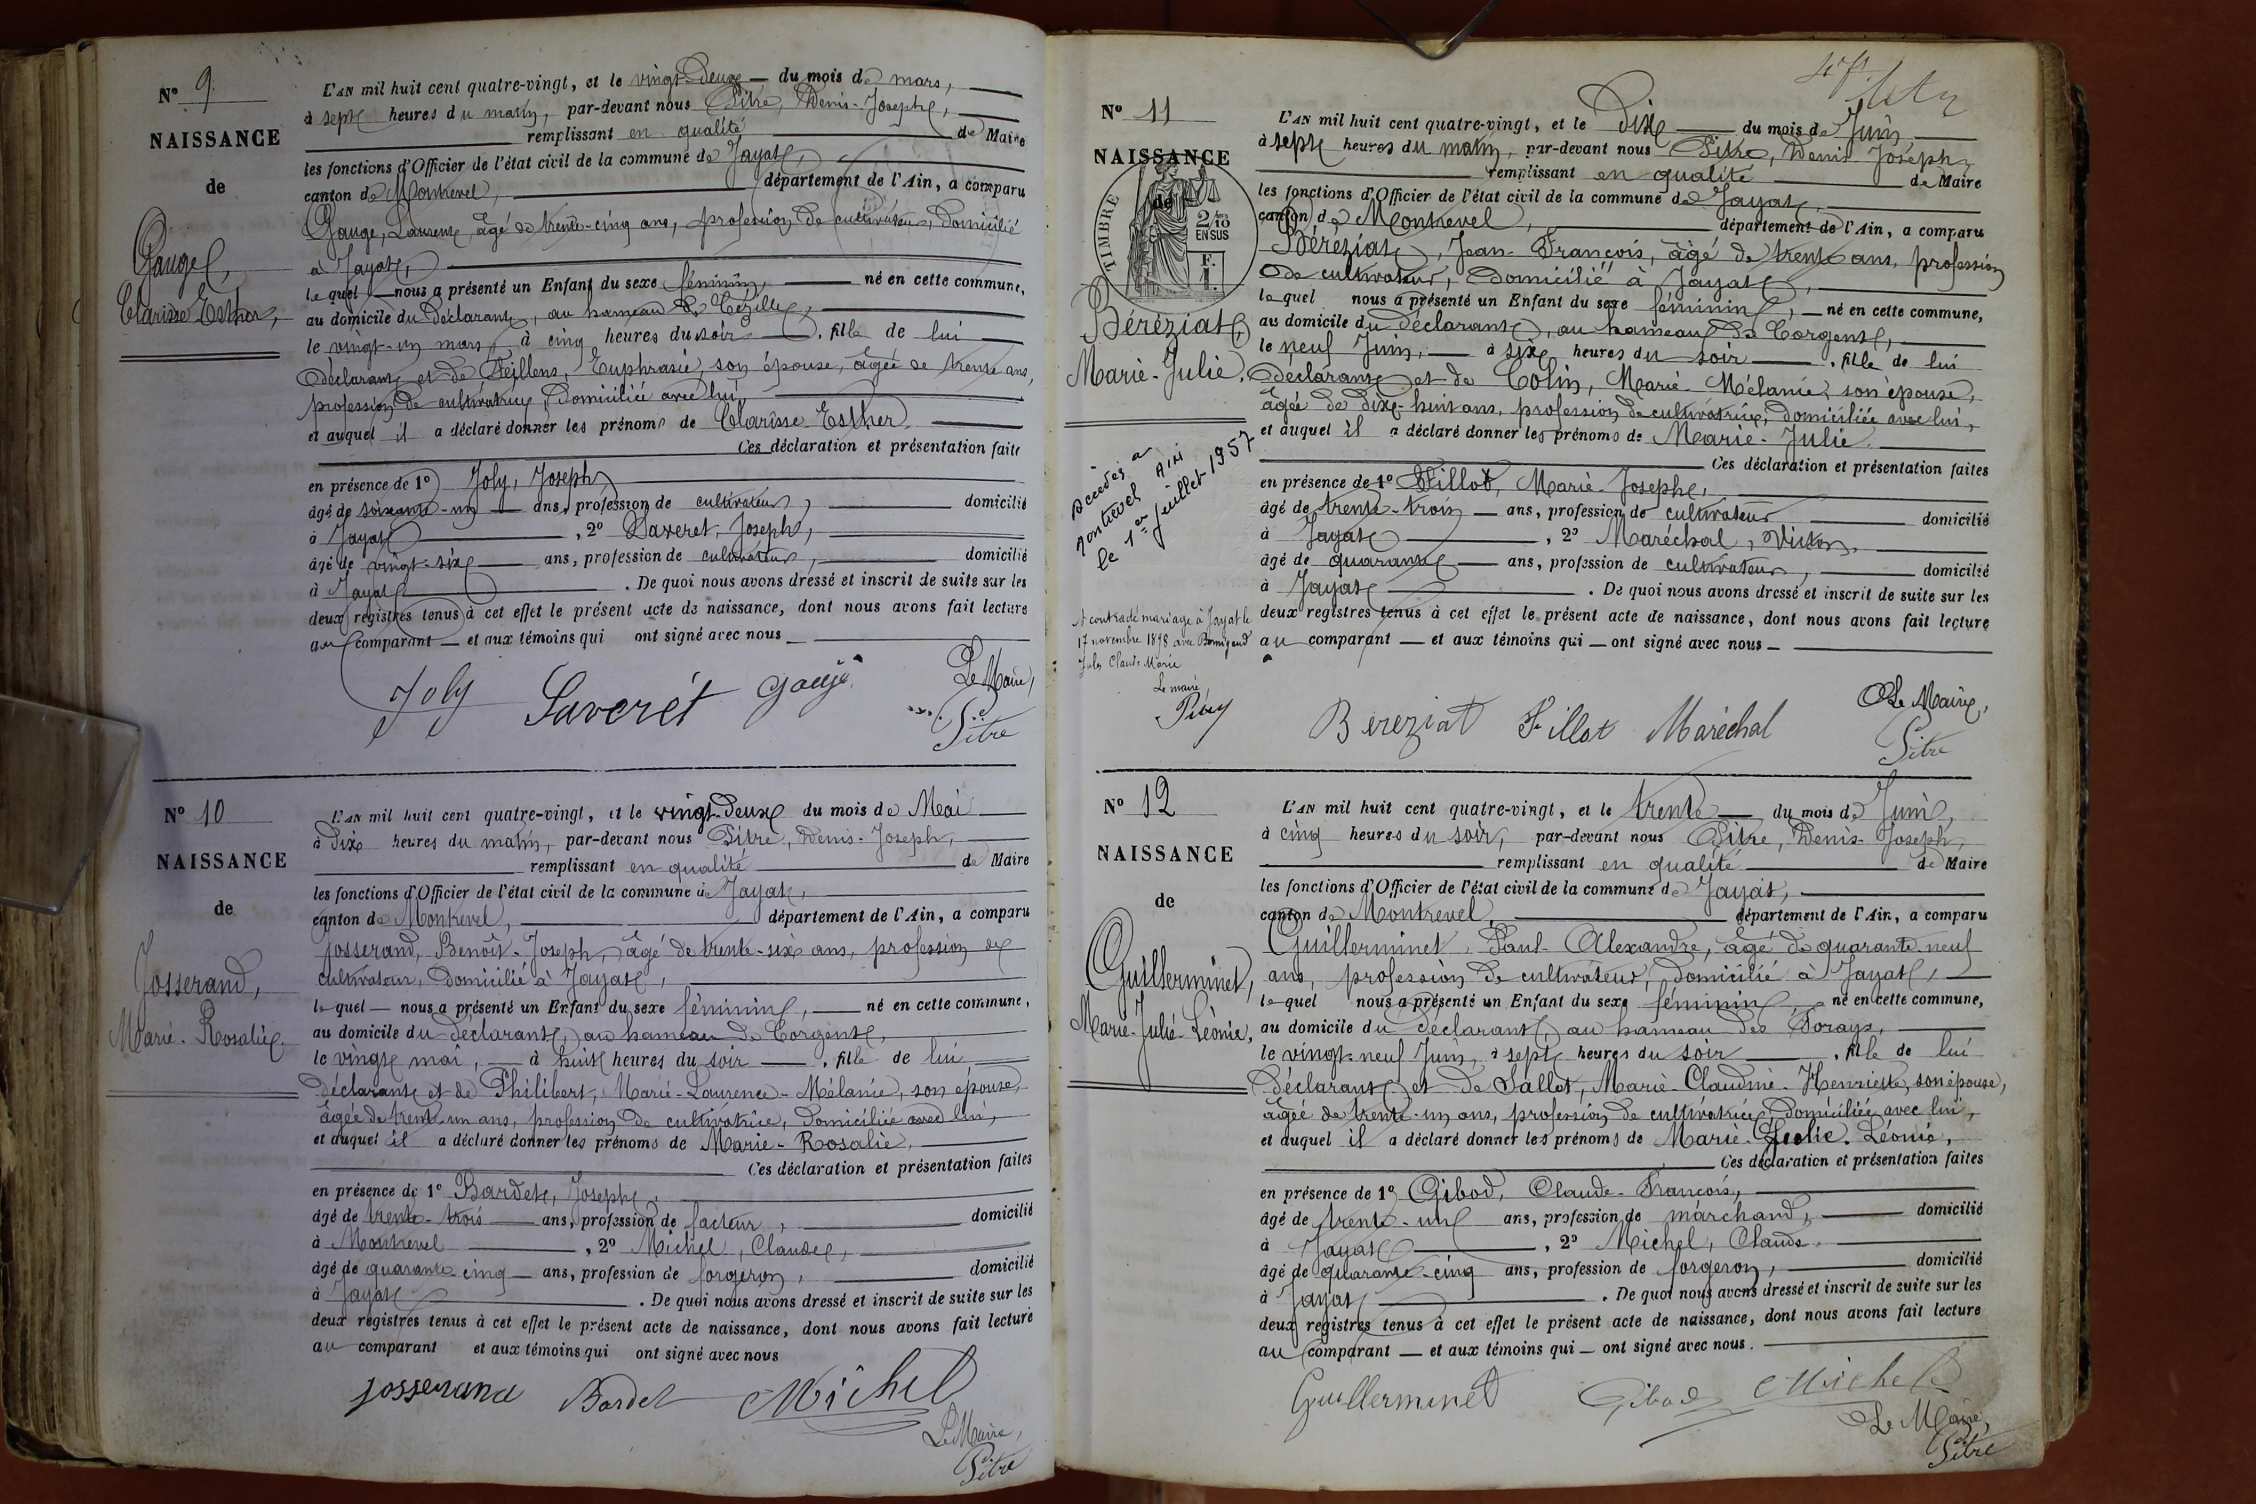 Nº 9
NAISSANCE
de
Gauge,
Clarisse Esther,
L'AN mil huit cent quatre-vingt, et le vingt-deux du mois de mars,
à sept heures du matin, par-devant nous Pitre, Denis-Joseph,
remplissant en qualité de Maire
les fonctions d'Officier de l'état civil de la commune de Jayat,
canton de Montrevel, département de l'Ain, a comparu
Gauge, Laurent, âgé de trente-cinq ans, profession de cultivateur, domicilié
à Jayat,
le quel nous a présenté un Enfant du sexe féminin, né en cette commune,
au domicile du déclarant, au hameau de Cézille,
le vingt-un mars à cinq heures du soir, fille de lui
déclarant et de Feillens, Euphrasie, son épouse, âgée de trente ans,
profession de cultivatrice, domiciliée avec lui,
et auquel il a déclaré donner les prénoms de Clarisse Esther.
Ces déclaration et présentation faites
en présence de 1º Joly, Joseph,
âgé de soixante-un ans, profession de cultivateur, domicilié
à Jayat, 2º Saveret, Joseph,
âgé de vingt-six ans, profession de cultivateur, domicilié
à Jayat. De quoi nous avons dressé et inscrit de suite sur les
deux registres tenus à cet effet le présent acte de naissance, dont nous avons fait lecture
au comparant et aux témoins qui ont signé avec nous
Joly Saverét Gauge
Le Maire,
Pitre
Nº 10
NAISSANCE
de
Josserand,
Marie-Rosalie.
L'AN mil huit cent quatre-vingt, et le vingt-deux du mois de Mai
à dix heures du matin, par-devant nous Pitre, Denis-Joseph,
remplissant en qualité de Maire
les fonctions d'Officier de l'état civil de la commune de Jayat,
canton de Montrevel, département de l'Ain, a comparu
Josserand, Benoît-Joseph, âgé de trente-six ans, profession de
cultivateur, domicilié à Jayat,
le quel nous a présenté un Enfant du sexe féminin, né en cette commune,
au domicile du déclarant, au hameau de Corgent,
le vingt mai, à huit heures du soir, fille de lui
déclarant et de Philibert, Marie-Laurence-Mélanie, son épouse,
âgée de trente-un ans, profession de cultivatrice, domiciliée avec lui,
et auquel il a déclaré donner les prénoms de Marie-Rosalie.
Ces déclaration et présentation faites
en présence de 1º Bardet, Joseph,
âgé de trente-trois ans, profession de facteur, domicilié
à Montrevel, 2º Michel, Claude,
âgé de quarante-cinq ans, profession de forgeron, domicilié
à Jayat. De quoi nous avons dressé et inscrit de suite sur les
deux registres tenus à cet effet le présent acte de naissance, dont nous avons fait lecture
au comparant et aux témoins qui ont signé avec nous
Josserand Bardet Michel
Le Maire,
Pitre
Nº 11
NAISSANCE
de
TIMBRE
2/10
EN SUS
F.
1.
Béréziat,
Marie-Julie.
Décédée à
Montrevel Ain
le 1er juillet 1957
A contracté mariage à Jayat le
17 novembre 1898 avec
Jules Claude Marie
Le maire,
L'AN mil huit cent quatre-vingt, et le dix du mois de Juin
à sept heures du matin, par-devant nous Pitre, Denis-Joseph,
remplissant en qualité de Maire
les fonctions d'Officier de l'état civil de la commune de Jayat,
canton de Montrevel, département de l'Ain, a comparu
Béréziat, Jean-François, âgé de trente ans, profession
de cultivateur, domicilié à Jayat,
le quel nous a présenté un Enfant du sexe féminin, né en cette commune,
au domicile du déclarant, au hameau de Corgent,
le neuf Juin, à six heures du soir, fille de lui
déclarant et de Colin, Marie-Mélanie, son épouse,
âgée de dix-huit ans, profession de cultivatrice, domiciliée avec lui,
et auquel il a déclaré donner les prénoms de Marie-Julie.
Ces déclaration et présentation faites
en présence de 1º Fillot, Marie-Joseph,
âgé de trente-trois ans, profession de cultivateur domicilié
à Jayat, 2º Maréchal, Victor,
âgé de quarante ans, profession de cultivateur, domicilié
à Jayat. De quoi nous avons dressé et inscrit de suite sur les
deux registres tenus à cet effet le présent acte de naissance, dont nous avons fait lecture
au comparant et aux témoins qui ont signé avec nous
Béreziat Fillot Maréchal
Le Maire,
Pitre
Nº 12
NAISSANCE
de
Guillerminet,
Marie-Julie-Léonie,
L'AN mil huit cent quatre-vingt, et le trente du mois de Juin,
à cinq heures du soir, par-devant nous Pitre, Denis-Joseph,
remplissant en qualité de Maire
les fonctions d'Officier de l'état civil de la commune de Jayat,
canton de Montrevel, département de l'Ain, a comparu
Guillerminet, Paul-Alexandre, âgé de quarante-neuf
ans, profession de cultivateur, domicilié à Jayat,
le quel nous a présenté un Enfant du sexe féminin, né en cette commune,
au domicile du déclarant, au hameau des Sorays,
le vingt-neuf Juin, à sept heures du soir, fille de lui
déclarant et de Sallet, Marie-Claudine-Henriette, son épouse,
âgée de trente-un ans, profession de cultivatrice, domiciliée avec lui,
et auquel il a déclaré donner les prénoms de Marie-Julie-Léonie,
Ces déclaration et présentation faites
en présence de 1º Gibod, Claude-François,
âgé de trente-un ans, profession de marchand, domicilié
à Jayat, 2º Michel, Claude,
âgé de quarante-cinq ans, profession de forgeron, domicilié
à Jayat. De quoi nous avons dressé et inscrit de suite sur les
deux registres tenus à cet effet le présent acte de naissance, dont nous avons fait lecture
au comparant et aux témoins qui ont signé avec nous.
Guillerminet Gibod Michel
Le Maire,
Pitre